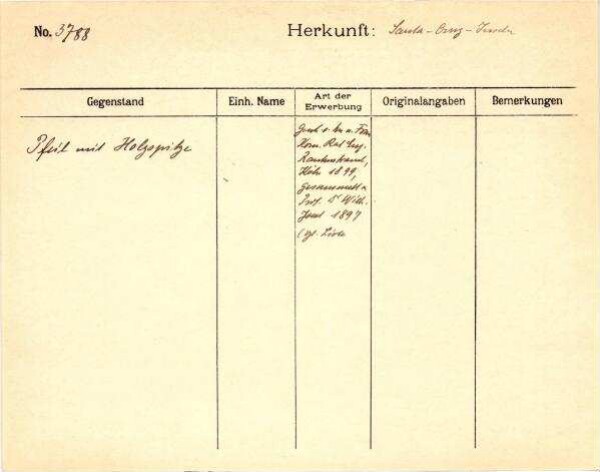 No. 3788
Herkunft: Santa-Cruz-Inseln
Gegenstand
Einh. Name
Art der
Erwerbung
Originalangaben
Bemerkungen
Pfeil mit Holzspitze
Gesch. v. Hr. u. Frau
Kom. Rat Eug.
Rautenstrauch,
Köln 1899,
gesammelt v.
Prof. Dr Wilh.
Joest 1897